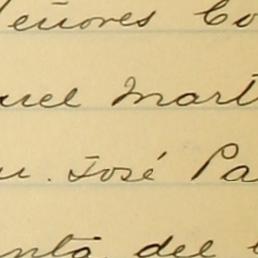 eñores Co
uel Mart
u. José Pa
nta del